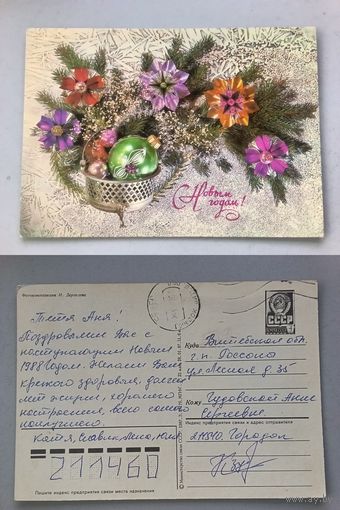 С Новым
годом!
Фотокомпозиция И. Дергилева
Тётя Аня!
Поздравляем Вас с
наступающим Новым
1988 годом. Желаем Вам
крепкого здоровья, долгих
лет жизни, хорошего
настроения, всего самого
наилучшего.
Катя, Славик,
211460
Пишите индекс предприятия связи места назначения
СССР
Куда Витебская обл.
г.п. Россоны
ул Лесная д. 35
Кому Гудовской Анне
Сергеевне
Индекс предприятия связи и адрес отправителя
211540. Городок